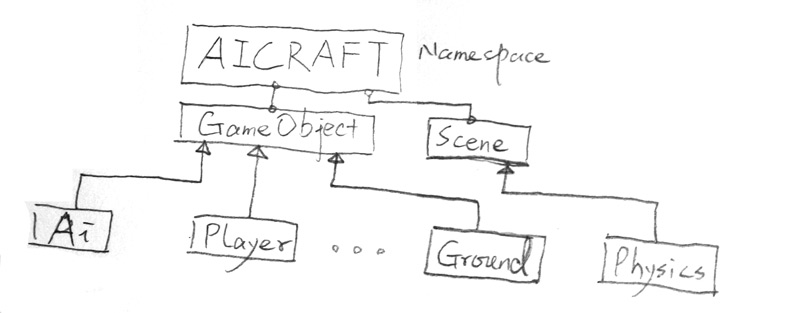 AICRAFT Namespace
GameObject
Scene
Ai
Player
...
Ground
Physics